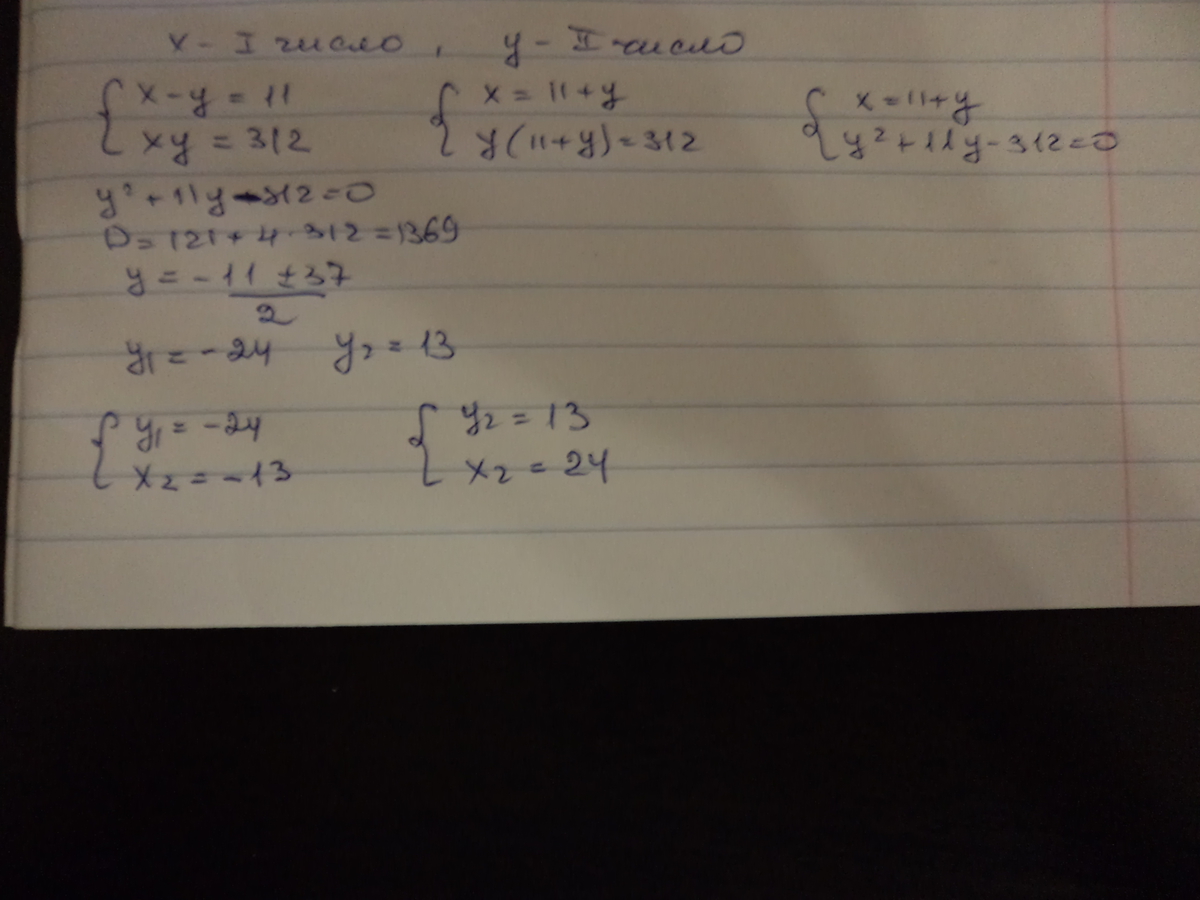 x - I число, y - II число
{ x - y = 11 { x = 11 + y { x = 11 + y
xy = 312 y(11+y) = 312 y² + 11y - 312 = 0
y² + 11y - 312 = 0
D = 121 + 4 · 312 = 1369
y = -11 ± 37
2
y₁ = -24 y₂ = 13
{ y₁ = -24 { y₂ = 13
x₂ = -13 x₂ = 24